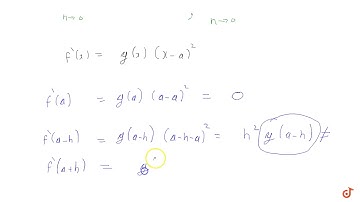 h→0 ; h→0
f'(x) = g(x) (x-a)²
f'(a) = g(a) (a-a)² = 0
f'(a-h) = g(a-h) (a-h-a)² = h² g(a-h) ≠
f'(a+h) = g